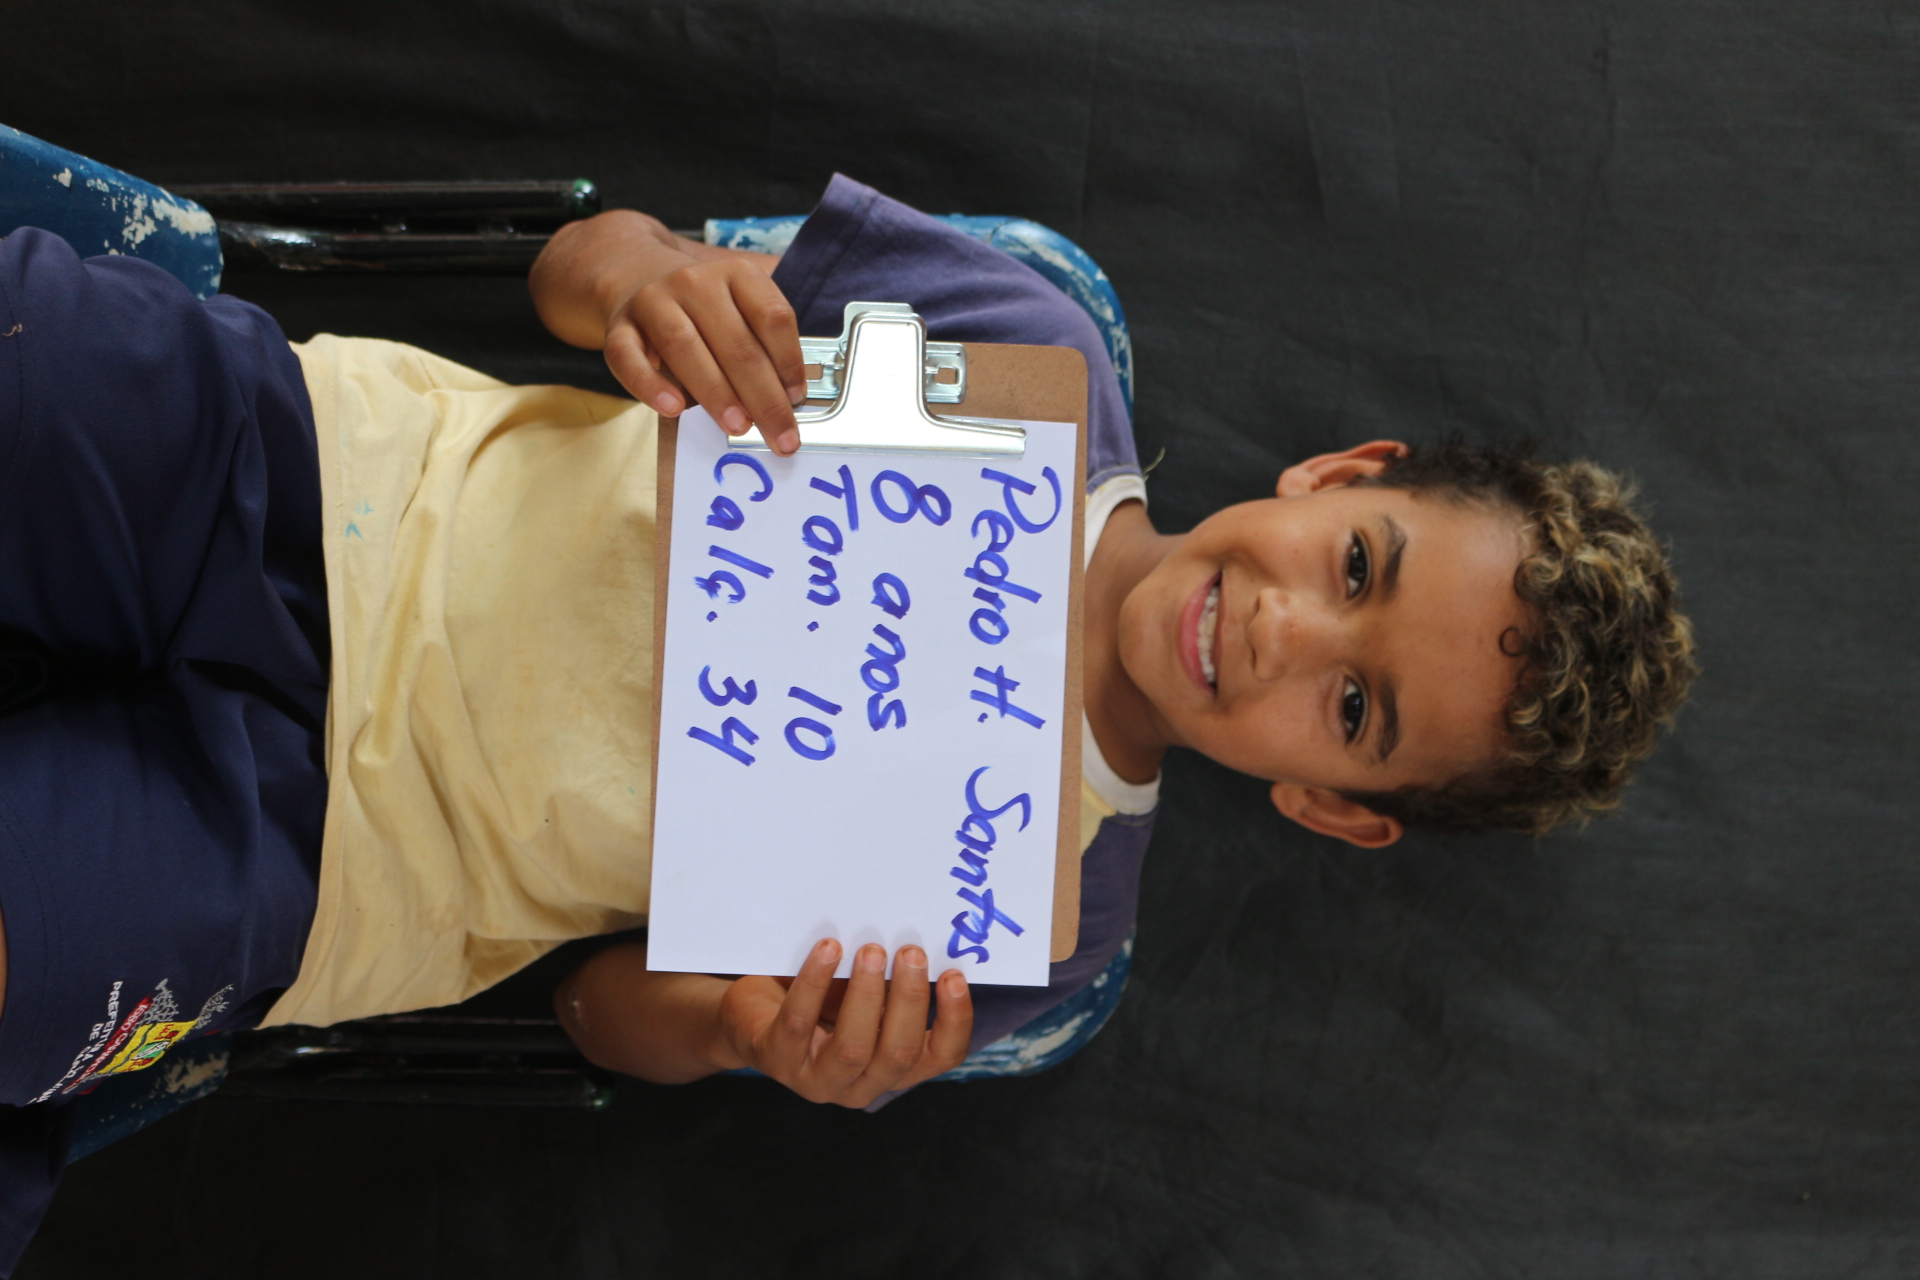 Pedro H. Santos
8 anos
Tam. 10
Calç. 34
PREFEITURA
DE